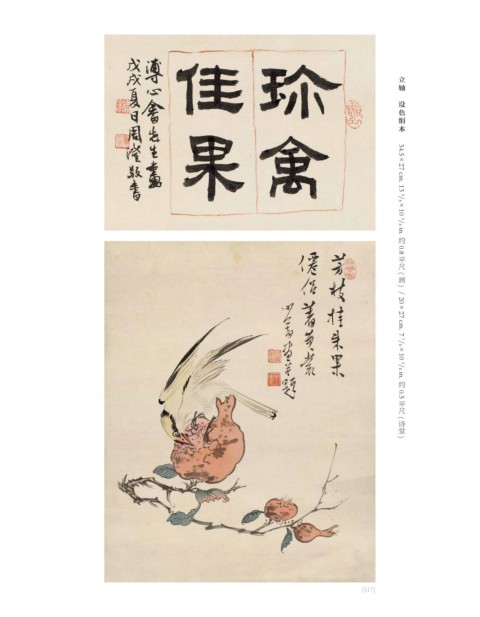 珎禽
佳果
溥心畬先生畫
戊戌夏日周澄敬書
芳枝挂朱果
僊侶著黃裳
心畬畫并題
立轴 设色绢本 34.5×27 cm. 13 5/8×10 5/8 in. 约0.8平尺(画) / 20×27 cm. 7 7/8×10 5/8 in. 约0.5平尺(诗堂)